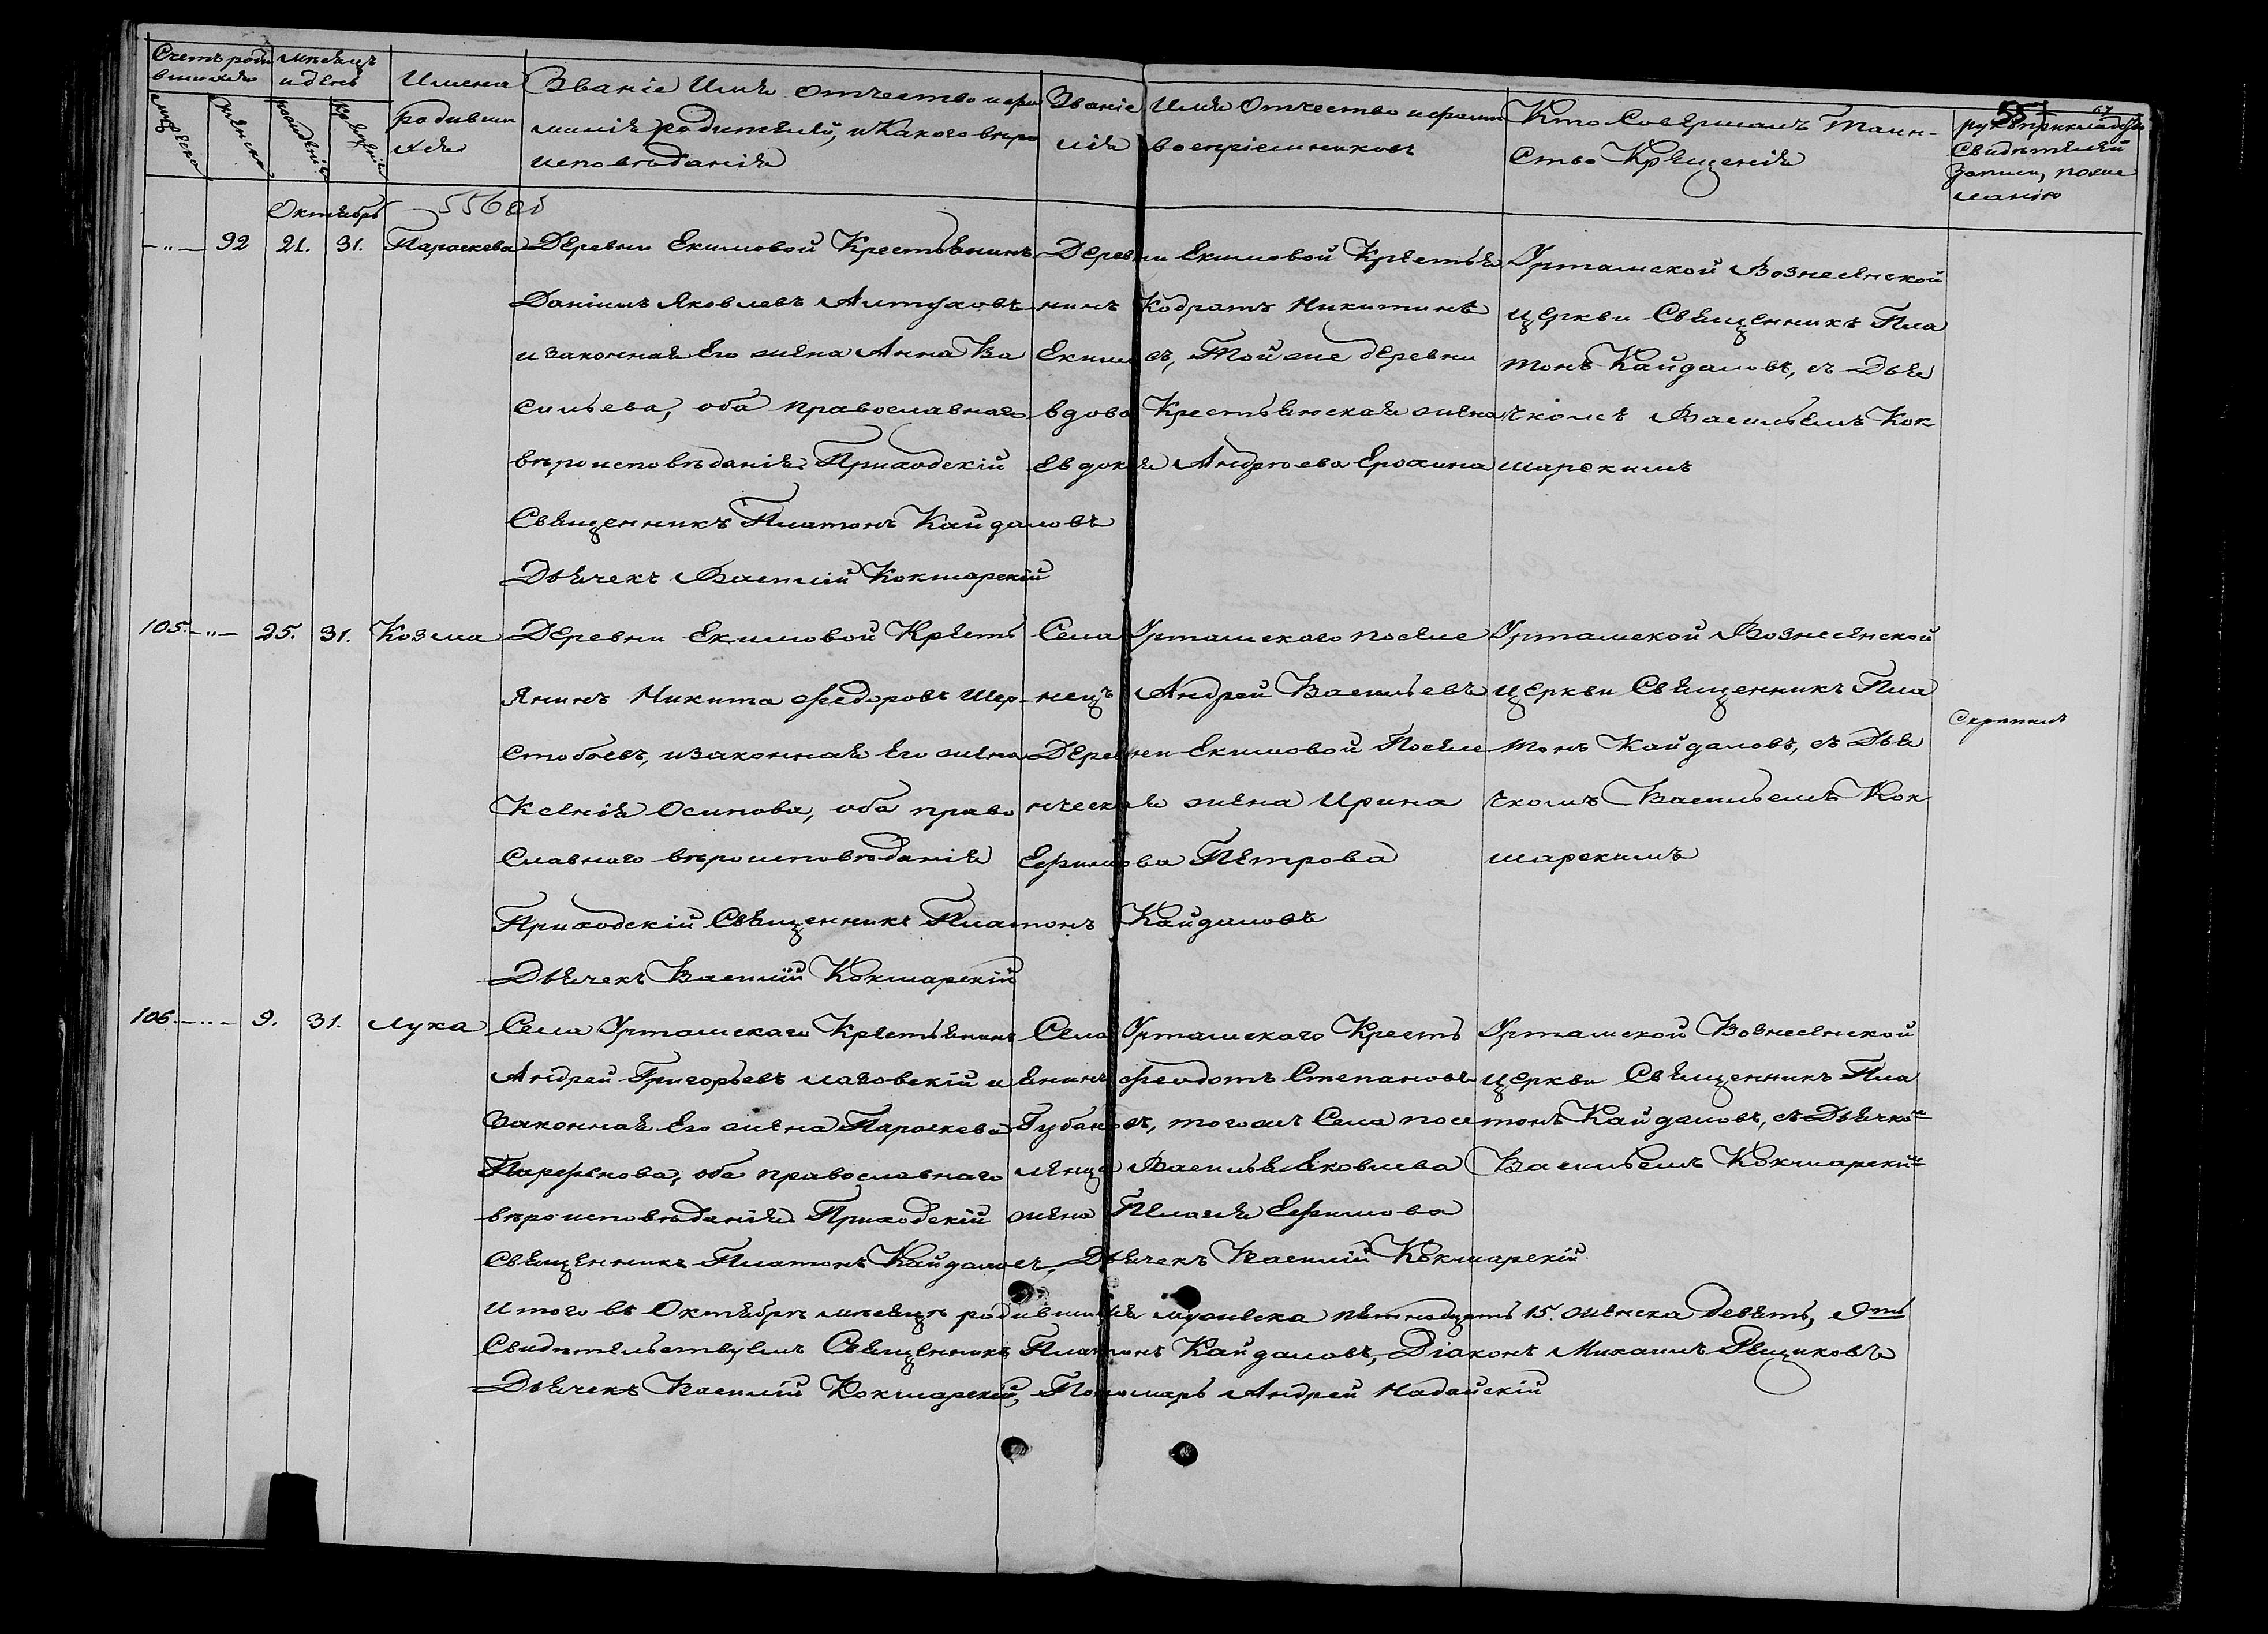 557 67
Счетъ роди
вшихся
Мѣсяцъ
и день
мужеска
женска
рожденія
крещенія
Имена
родивши
хся
Званіе Имя отчество и фа
милія родителей, и какого вѣро
исповѣданія
Званіе Имя Отчество и фами
лія воспріемниковъ
Кто Совершалъ Таин-
ство Крещенія
рукоприкладство
Свидѣтелей
записи, по же
ланію
Октябрь 556об
-"- 92 21. 31. Параскева
Деревни Екимовой Крестьянинъ
Даніилъ Яковлевъ Алтуховъ
и законная его жена Анна Ва
сильева, оба православнаго
вѣроисповѣданія Приходскій
Священникъ Платонъ Кайдаловъ
Дьячекъ Василій Кокшарскій
Деревни Екимовой Крестья
нинъ Кодратъ Никитинъ
Екимовъ, Той же деревни
вдова Крестьянская жена
Евдокія Андреева Ерохина
Урташской Вознесенской
церкви Священникъ Пла
тонъ Кайдаловъ, съ Дья
чкомъ Васильемъ Кок
шарскимъ
105. -"- 25. 31. Козма
Деревни Екимовой Кресть
янинъ Никита Федоровъ Шер-
стобоевъ, и законная его жена
Ксенія Осипова, оба право
славнаго вѣроисповѣданія
Приходскій Священникъ Платонъ Кайдаловъ
Дьячекъ Василій Кокшарскій
Села Урташскаго поселе
нецъ Андрей Васильевъ
Деревни Екимовой Поселе
нческая жена Ирина
Ефимова Петрова
Урташской Вознесенской
церкви Священникъ Пла
тонъ Кайдаловъ, съ Дья
чкомъ Васильемъ Кок
шарскимъ
106. -"- 9. 31. Лука
Села Урташскаго Крестьянинъ
Андрей Григорьевъ Лазовскій и
законная его жена Параскева
Парфенова, оба православнаго
вѣроисповѣданія Приходскій
Священникъ Платонъ Кайдаловъ, Дьячекъ Василій Кокшарскій
Села Урташскаго Кресть
янинъ Феодотъ Степановъ
Губановъ, того же Села посе
ленца Василья Яковлева
жена Пелагея Ефимова
Урташской Вознесенской
церкви Священникъ Пла
тонъ Кайдаловъ, съ Дьячко
Васильемъ Кокшарски
Итого въ Октябрѣ мѣсяцѣ родившихся мужеска пятнадцать 15. женска девять, 9ть
Свидѣтельствуемъ Священникъ Платонъ Кайдаловъ, Діаконъ Михаилъ Рещиковъ
Дьячекъ Василій Кокшарскій, Пономарь Андрей Надайскій